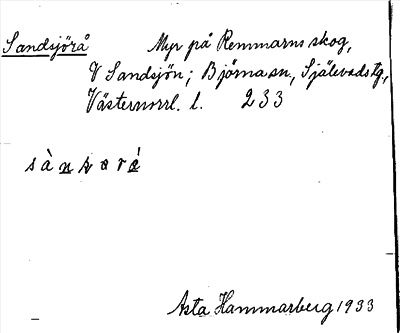 Sandsjörå Myr på Remmarns skog,
V Sandsjön; Björna sn., Själevads tg,
Västernorrl. l. 233
Asta Hammarberg 1933